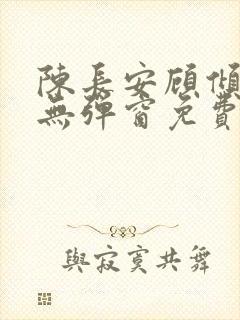 陳長安顧傾
無彈窗免費
與寂寞共舞